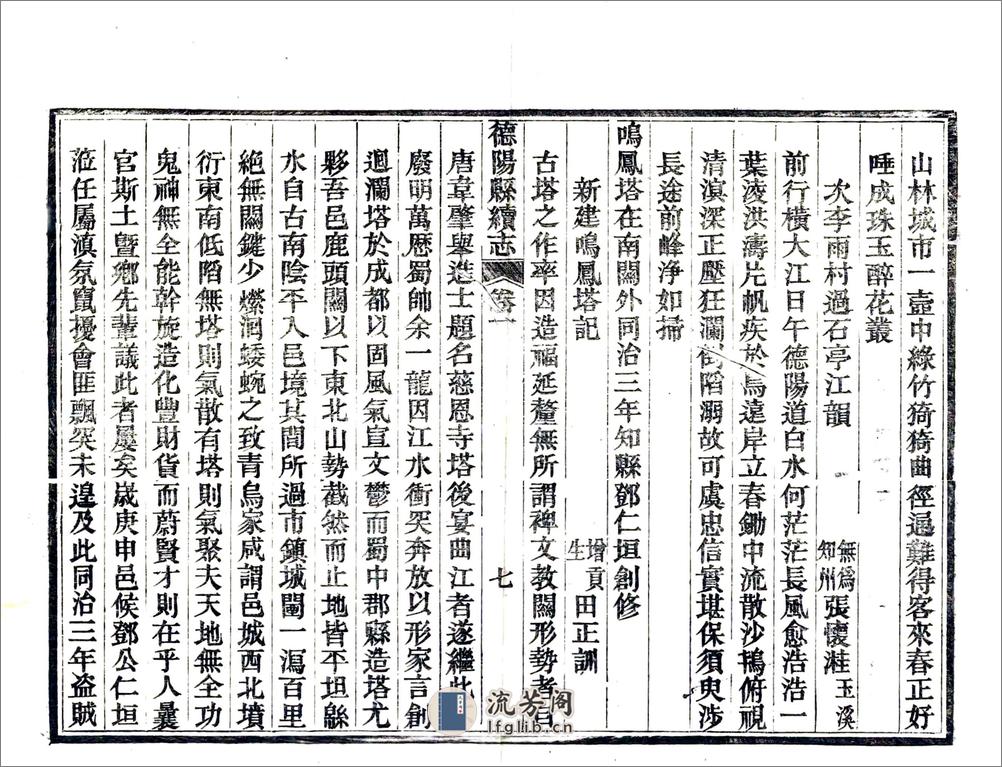 山林城市一壺中綠竹猗猗曲徑通難得客來春正好
唾成珠玉醉花叢
次李雨村過石亭江韻 無爲知州張懷溎玉溪
前行橫大江日午德陽道白水何茫茫長風愈浩浩一
葉淩洪濤片帆疾於鳥遠岸立春鋤中流散沙鴇俯視
清滇深正壓狂瀾倒陷溺故可虞忠信實堪保須臾涉
長途前峰浄如掃
鳴鳳塔在南關外同治三年知縣鄧仁垣創修
新建鳴鳳塔記 增貢生田正訓
古塔之作率因造福延釐無所謂裨文教關形勢者自
德陽縣續志 卷一 七
唐韋肇舉造士題名慈恩寺塔後宴曲江者遂繼此
廢明萬厯蜀帥余一龍因江水衝突奔放以形家言創
迴瀾塔於成都以固風氣宣文鬱而蜀中郡縣造塔尤
夥吾邑鹿頭關以下東北山勢截然而止地皆平坦緜
水自古南陰平入邑境其間所過市鎮城闉一瀉百里
絕無關鍵少瀠洄蜲蜿之致青烏家咸謂邑城西北墳
衍東南低陷無塔則氣散有塔則氣聚夫天地無全功
鬼神無全能幹旋造化豐財貨而蔚賢才則在乎人曩
官斯土暨鄉先輩議此者屢矣歲庚申邑候鄧公仁垣
蒞任屬滇氛竄擾會匪飄突未遑及此同治三年盗賊
流芳阁
lfglib.cn